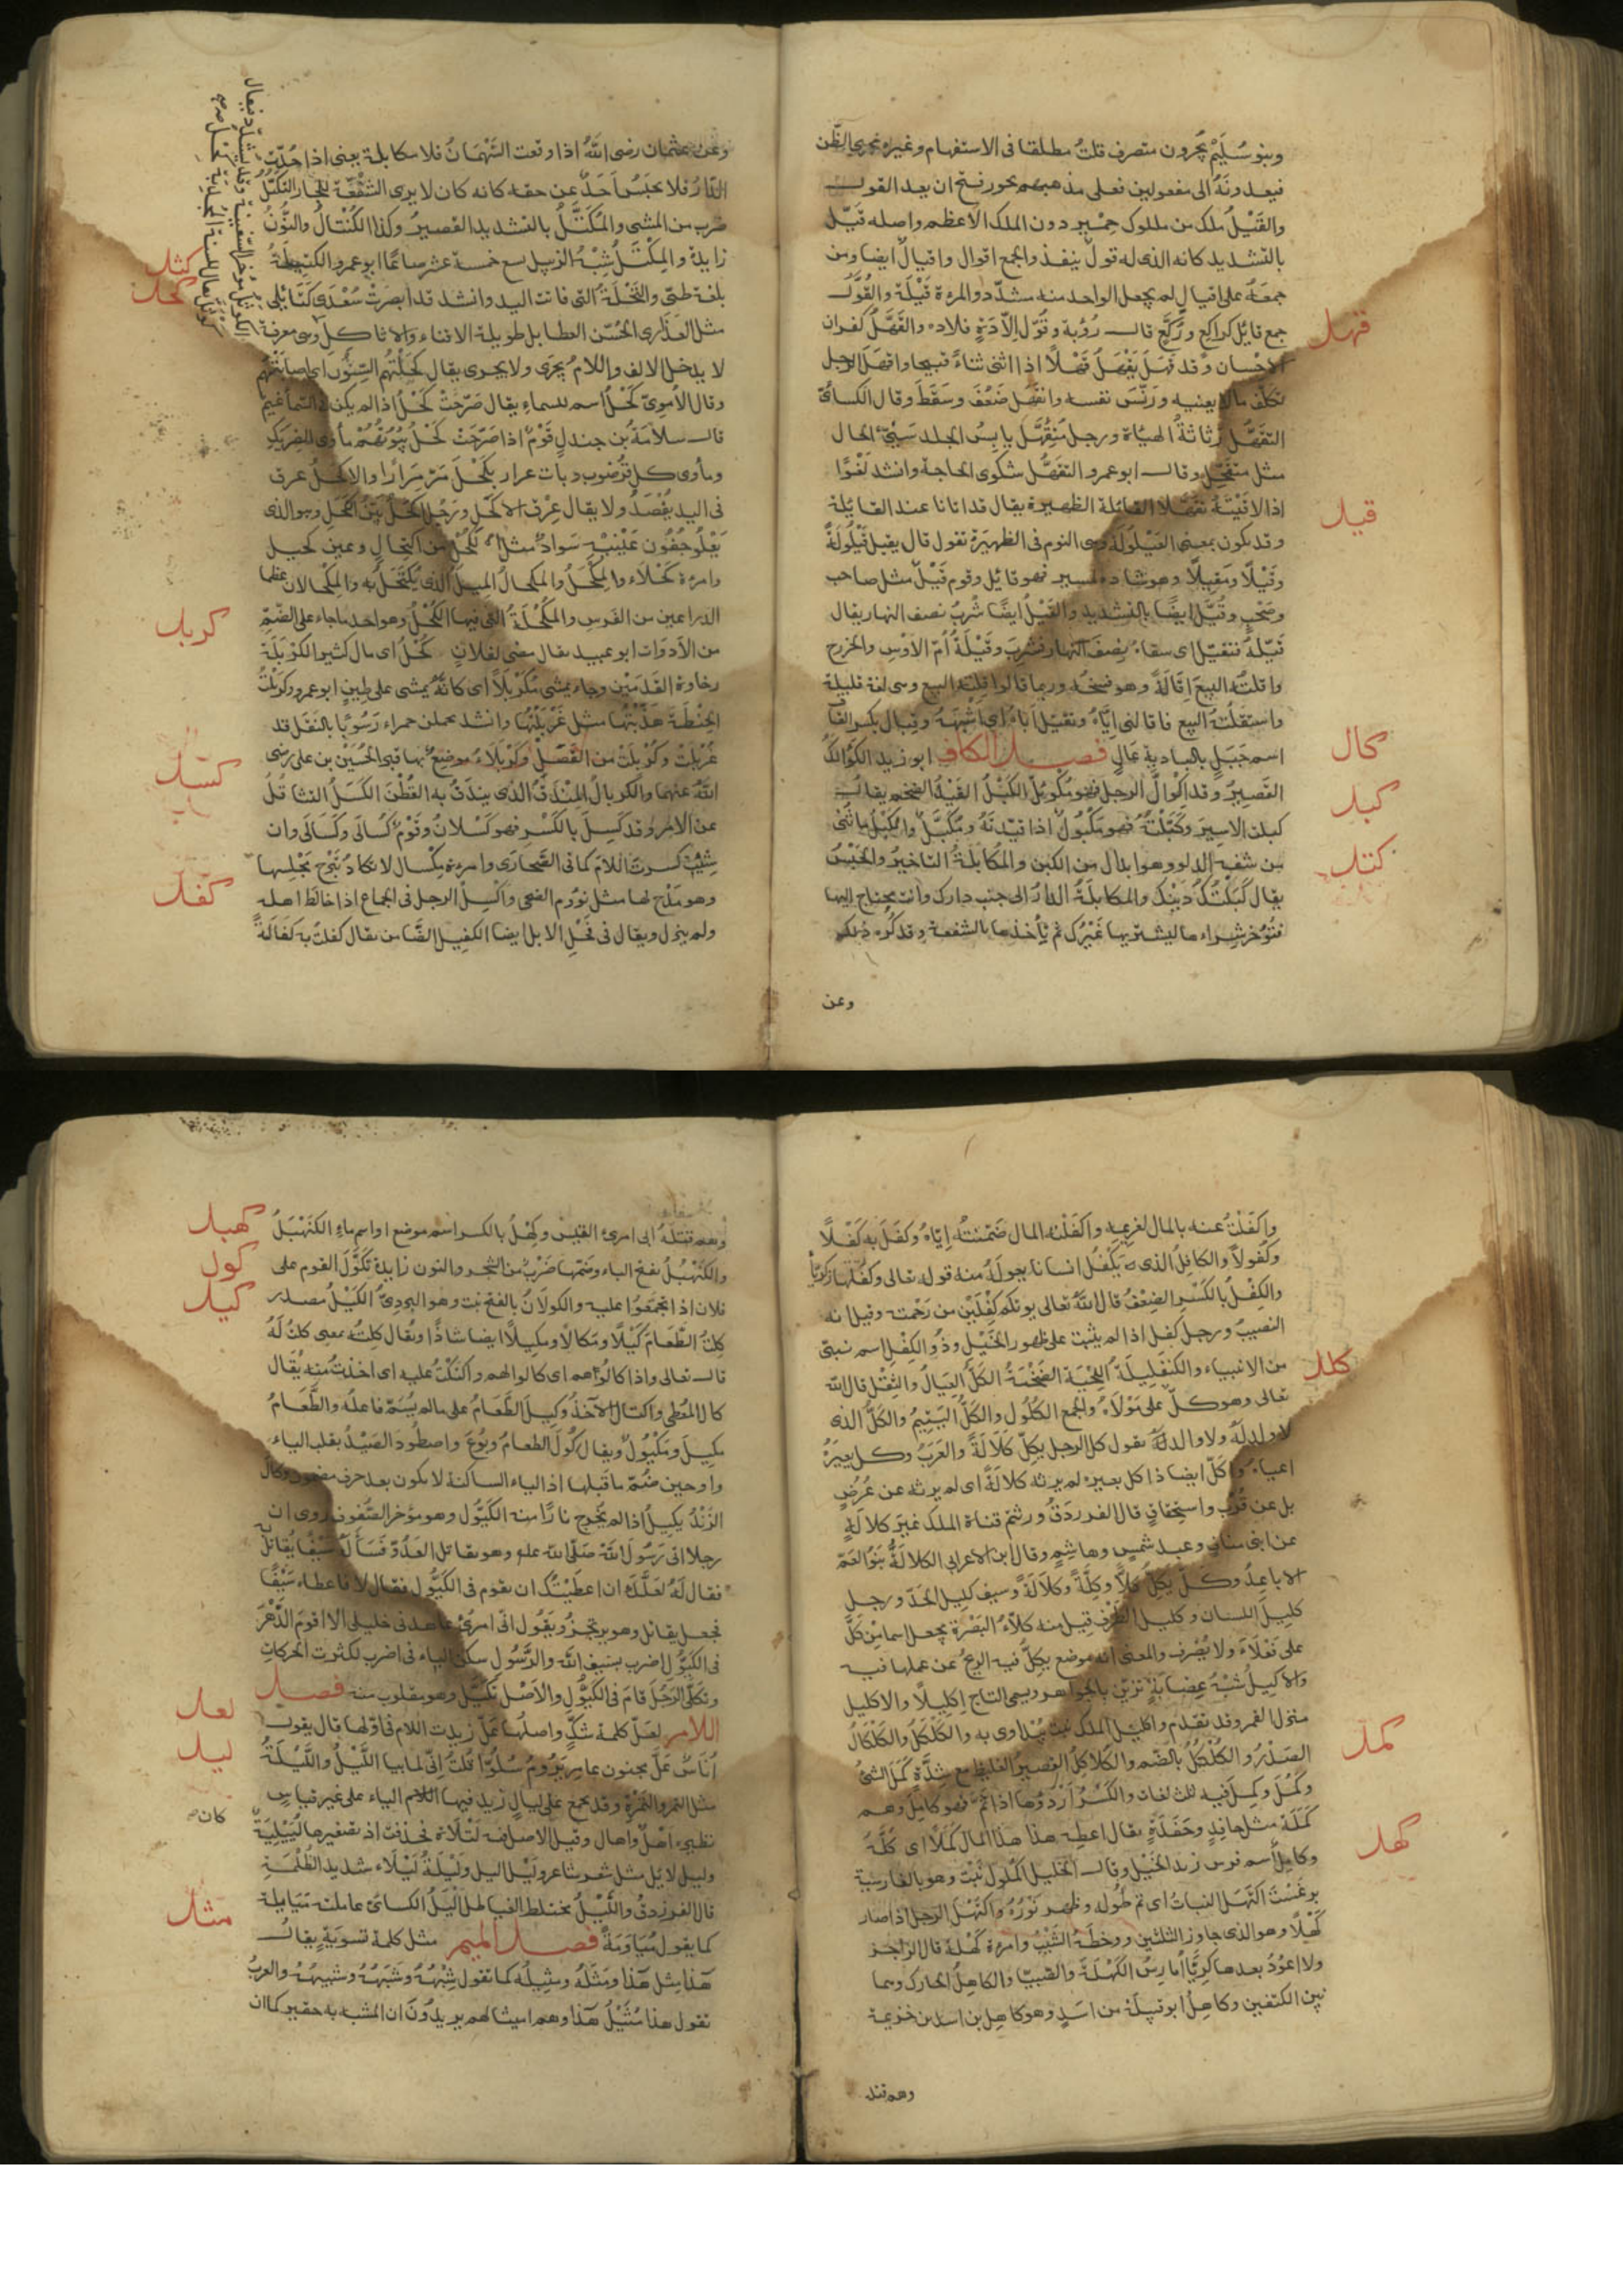 وبنو سُلَيْمٍ يُجرون متصرف قلتُ مطلقا فى الاستفهام وغيره مجرى الظّن
فيعدونَهُ الى مفعولين فعلى مذهبهم يجوز فتح ان بعد القول
والقَيْلُ ملك من ملوك حِمْيرٍ دون الملك الاعظم واصله قَيّل
بالتشديد كانه الذى له قولٌ ينفذ والجمع اقوال واقيالٌ ايضا ومن
جمعَهُ على اقيالٍ لم يجعل الواحد منه مشدّد والمرءة قَيْلَة والقُوَّل
جمع قائل كراكع وركّع قال رُؤبة وقُوّلٍ اِلّا دَهٍ فلا ده والقَهْلُ كفران
الاحسان وقد قهَلَ يَقْهَلُ قَهْلًا اذا اثنى ثناءً قبيحا واقهَلَ الرجل
تكلّف مالا يعنيه ودنّس نفسه وانقهَل ضَعُفَ وسَقَطَ وقال الكسائى
التقهّل رثاثةُ الهيأة ورجل مُتقهّل يابِسُ الجلد سيّئُ الحال
مثل متقحّل وقال ابو عمرو التقهُّل شكوى الحاجة وانشد لَعْوًا
اذا لاقَيْتَهُ تقهّلا القائلة الظهيرة يقال قد اتانا عند القايلة
وقد يكون بمعنى القَيلُولة وهى النوم فى الظهيرة تقول قال يقيل قَيْلُولَةً
وقَيْلًا ومَقِيلًا وهو شاذ فهو قائل وقوم قَيْلٌ مثل صاحب
وصَحْبٍ وقُيَّلٌ ايضًا بالتشديد والقَيْلُ ايضًا شُربُ نصف النهار يقال
قَيّلهُ فتقيّل اى سقاهُ نِصفَ النهار فشرِبَ وقَيْلَةُ اُمّ الاَوْسِ والخزرج
واقلتُهُ البيعَ اِقالةً وهو فسخُه وربما قالوا قِلتُه البيع وهى لغة قليلة
واستقلْتُه البيع فاقالنى ايّاهُ وتقيّل اَباهُ اى اشبهَهُ وقِيال بكسر القاف
اسم جَبَلٍ بالبادية عَالٍ فصل الكاف ابو زيد الكَوَالكُ
القصِيرُ وقد اكْوالّ الرجل فهو مُكْوئلّ الكَبْلُ القَيْدُ الضخم يقال
كبلت الاسير وكَبّلْتُهُ فهو مَكْبُولٌ اذا قيّدته ومُكَبَّلٌ والكَبْلُ ما ثُنى
من شفة الدلو وهو ابدال من الكبن والمُكابلةُ التاخيرُ والحَبْسُ
يقال كَبَلْتُكَ دَيْنَكَ والمكابلةُ الدارُ الى جنب دارك وانت محتاج اليها
فتُؤخر شِراءها ليشتريها غَيْرُك ثم تاخذها بالشفعة وقد كُره ذلك
وعن
قهل
قيل
كال
كبل
كتل
وعن عثمان رضى اللّٰهُ اذا وقعت السُّهْمَانُ فلا مكابلة يعنى اذا حُدّت
الدّارُ فلا يحبسُ اَحدٌ عن حقه كانه كان لا يرى الشُفْعَة للجار التكتّلُ
ضرب من المشى والمُكَتَّلُ بالتشديد القصيرُ وكذا الكُنْتالُ والنُّونُ
زايدة والمِكْتَلُ شِبْهُ الزبيل يسع خمسة عشر صاعًا ابو عمرو الكتيلة
بلغة طىّ والنّخْلَةُ التى فاتت اليد وانشد قد ابصَرتْ سُعْدَى كَتَائِلى
مثل العَذَارى الحُسّن العطابل طويلة الاقناء والاثاكل وهى معرفة
لا يدخل الالف واللام يُجرَى ولا يجرى يقال كَحَلَتْهم السِّنُون اى اصابتهم
وقال الاُموىّ كَحْلُ اسم للسماء يقال صَرّحَتْ كَحْلُ اذا لم يكن فى السّماء غيم
قال سلامة بن جندل قَوْمٌ اذا صَرّحَتْ كَحْلُ بُيُوتُهُمُ مأوى الضريكِ
ومأوى كلِ قُرضوب وبات عرار بكَحْلَ مَرّ مَرارًا والاكحلُ عرق
فى اليد يُفْصَدُ ولا يقال عِرْق الاكحل ورجل اكحلُ بيّن الكَحَلِ وهو الذى
يَعْلُو جفُون عَيْنَيْهِ سَوادٌ مثل الكُحْلِ من اكتحال وعين كحيل
وامرءة كَحْلَاء والمِكْحَلُ والمِكحالُ المِيلُ الذى يُكْتَحَلُ به والمِكْحَالان عظما
الذراعين من الفَرَسِ والمُكْحُلةُ التى فيها الكُحْلُ وهو احد ما جاء على الضَّمِّ
من الاَدَوات ابو عبيد يقال مضى لفلانٍ كَحْلٌ اى مال كثير الكَرْبَلَة
رخاوة القَدَمَيْن وجاء يمشى مُكَرْبَلًا اى كانّهُ يمشى على طِينٍ ابو عمرو كَرْبَلْتُ
الحِنْطَة هَذَّبْتُها مثل غَرْبَلْتُها وانشد يحملن حمراء رَسُوبًا بالنَقل قد
غُرْبلَتْ وكُرْبلَتْ من القَصَلْ وكَرْبلاءُ موضعٌ بها قبر الحُسَيْن بن على رضى
اللّٰه عنهما والكربالُ المِنْدَفُ الذى يندف به القُطْنَ الكَسَلُ التثاقُلُ
عن الامر وقد كسِلَ بالكَسْرِ فهو كَسْلانُ وقَوْمٌ كُسالى وكَسَالَى وان
شِئتَ كسرتَ اللامَ كما فى الصَّحارَى وامرءة مِكْسال لا تكادُ تَبْرَح مَجْلِسها
وهو مَدْح لها مثل نؤوم الضحى واكْسَلَ الرجل فى الجماع اذا خالَط اهله
ولم ينزل ويقال فى فَحْلِ الابل ايضا الكفِيل الضّامن يقال كفلتُ به كَفَالَةً
كثل
كحل
كربل
كسل
كفل
واكفَلْتُ عنه بالمال لغريمه واكفَلْتُه المال ضَمّنتُه اِيّاهُ وكفَلَ به كَفْلًا
وكُفولًا والكافِلُ الذى يَكْفُلُ انسانا يعولُهُ منه قوله تعالى وكفَّلها زكريّا
والكِفْلُ بالكَسْرِ الضِعْفُ قال اللّٰهُ تعالى يؤتكم كِفْلَين من رَحْمَته وقيل انه
النصيبُ ورجل كفل اذا لم يثبت على ظهور الخَيْلِ وذُو الكِفْلِ اسم نبىّ
من الانبياء والكنفَلِيلَةُ اللِحْيَة الضَخْمَةُ الكَلُّ العِيالُ والثِقْل قال اللّٰه
تعالى وهو كلٌّ على مَوْلَاهُ والجمع الكُلُول والكَلُّ اليَتيمُ والكَلُّ الذى
لا ولد لَهُ ولا والد لَهُ يقول كل الرجل يكِلّ كَلَالَةً والعَرَبُ وكل بعيره
اعياهُ واكلّ ايضا ذا كل بعيره لم يرثه كلالَةً اى لم يرثه عن عُرُضٍ
بل عن قُرْبٍ واستحقاقٍ قال الفرزدَقُ ورثتم قناة الملك غيرَ كلالةٍ
عن ابنى منافٍ وعبد شمسٍ وهاشِمٍ وقال ابن الاعرابى الكلالَةُ بَنُو العَمّ
الاباعِدُ وكلّ يَكِلُّ كلًّا وكِلَّةً وكَلَالةً وسيف كليل الحَدّ ورجل
كليل اللسان وكليل الطَرْف قيل منه كَلّاءُ البَصْرَة يجعل اسما مِن كلّ
على فَعْلَاءَ ولا يُصْرف والمعنى انه موضع يكِلّ فيه الريحُ عن عملها فيه
والاكليلُ شِبْهُ عِصَابَةٍ تزيّن بالجواهر ويسمى التاج اِكليلًا والاكليل
منزل القمر وقد تقدم واكليل الملك نبت يُتداوى به والكَلْكَلُ والكَلْكَالُ
الصَدْرُ والكُلْكُلُ بالضّم والكُلاكِلُ القصيرُ الغليظ مع شِدَّةٍ كمَلَ الشئُ
وكَمُلَ وكمِلَ فيه ثلث لغات والكَسْرُ اردؤها اذا تمّ فهو كامل وهم
كَمَلَةٌ مثل حافِدٍ وحَفَدَةٍ يقال اعطِه هذا المال كَمَلًا اى كُلَّهُ
وكامِلٌ اسم فرس زيد الخَيْل وقال الخليل الكُملُول نَبْت وهو بالفارسية
برغَسْتْ اكْتَهَلَ النباتُ اى تم طُوله وظهر نَوْرُهُ واكتَهَلَ الرجل اذا صار
كَهْلًا وهو الذى جاوز الثلثين ووخطَهُ الشَيْبُ وامرءة كَهْلة قال الراجز
ولا اعُوْدُ بعدها كَرِيًّا اُمارِسُ الكَهْلَةَ والصّبِيّا والكاهِلُ الحارِك وهما
بين الكتفين وكاهِلٌ ابو قبيلَة من اسَدٍ وهو كاهِل بن اسد بن خزيمة
وهم قتلة
كلل
كمل
كهل
وهم قتلةُ ابى امرئ القيْس وكِهْلُ بالكسر اسم موضع او اسم ماءٍ الكَنَهْبَلُ
والكَنَهْبُلُ بفتح الباء وضمّها ضَرْبٌ من الشجر والنون زايدة تَكَوَّلَ القوم على
فلان اذا تجمّعُوا عليه والكولَانُ بالفتح نبت وهو البردِىّ الكَيْلُ مصدر
كِلْتُ الطّعَامَ كَيْلًا ومَكالًا ومكِيلًا ايضا شاذًا ويُقال كِلتُه بمعنى كلتُ لَهُ
قال تعالى واذا كالُوهم اى كالوا لهم واكتَلْتُ عليه اى اخذتُ منه يُقال
كال المُعْطِى واكتال الآخذُ وكِيلَ الطّعَامُ على ما لم يُسَمّ فاعله والطَّعَامُ
مكِيلٌ ومَكْيُولٌ ويقال كُولَ الطعامُ وبُوعَ واصطُودَ الصَيْدُ بقلب الياء
واو حين ضُمّ ما قبلها اذ الياء الساكنة لا تكون بعد حرف مضموم وكالَ
الزَنْدُ يكيلُ اذا لم يُخرِج نارًا منه الكَيُّول وهو مؤخر الصُفوف روى ان
رجلا اتى رَسُولَ اللّٰهِ صَلّى اللّٰه عليه وهو يقاتل العَدُوّ فَسَألَهُ سَيْفًا يُقاتِلُ بِه
فقال لَهُ لعَلَّكَ ان اعطَيْتُك ان تقوم فى الكَيُّولِ فقال لا فاعطاه سَيْفًا
فجعل يقاتل وهو يرتجزُ ويَقُول انى امرؤٌ عاهدنى خليلى الا اقومَ الدَّهْرَ
فى الكَيُّول اضرب بسيفِ اللّٰه والرّسُولِ سكّن الباء فى اضرب لكثرت الحركات
وتكَلّى الرَجُل قامَ فى الكَيُّولِ والاَصْل تَكَيَّلَ وهو مقلوب منه فصل
اللام لعلّ كلمة شكٍّ واصلُها عَلّ زيدت اللام فى اوّلها قال يقول
اُناسٌ عَلَّ مجنون عامرٍ يَرُومُ سُلُوّا قُلتُ اِنّى لما بيا اللَّيْلُ والَّليْلَةُ
مثل التمر والتمرة وقد يجمع على ليالٍ زيد فيها اللام الياء على غير قياسٍ
نظيره اَهْلٌ واهال وقيل الاصل فيه لَيْلاة فحذفت اذ تصغيرها لُيَيْلِيَةٌ
وليل لايل مثل شعر شاعر ولَيْل اليل ولَيْلَةٌ لَيْلَاء شديد الظُلْمَةِ
قال الفرزدقُ والَّليْلُ مختلط الغياطل الْيَلُ الكسائى عاملته مُيَايلة
كما يقول مُيَاوَمَةً فصل الميم مثل كلمة تسويَةٍ يقالُ
هذا مِثل هٰذا ومَثَلُهُ ومثِيلُه كما تقول شِبْهُهُ وشَبَهُهُ وشبيهُهُ والعربُ
تقول هذا مُثَيْلُ هٰذا وهم اميثالهم يريدُونَ ان المشبه به حقير كما ان
كهبل
كول
كيل
لعل
ليل
كان
مثل